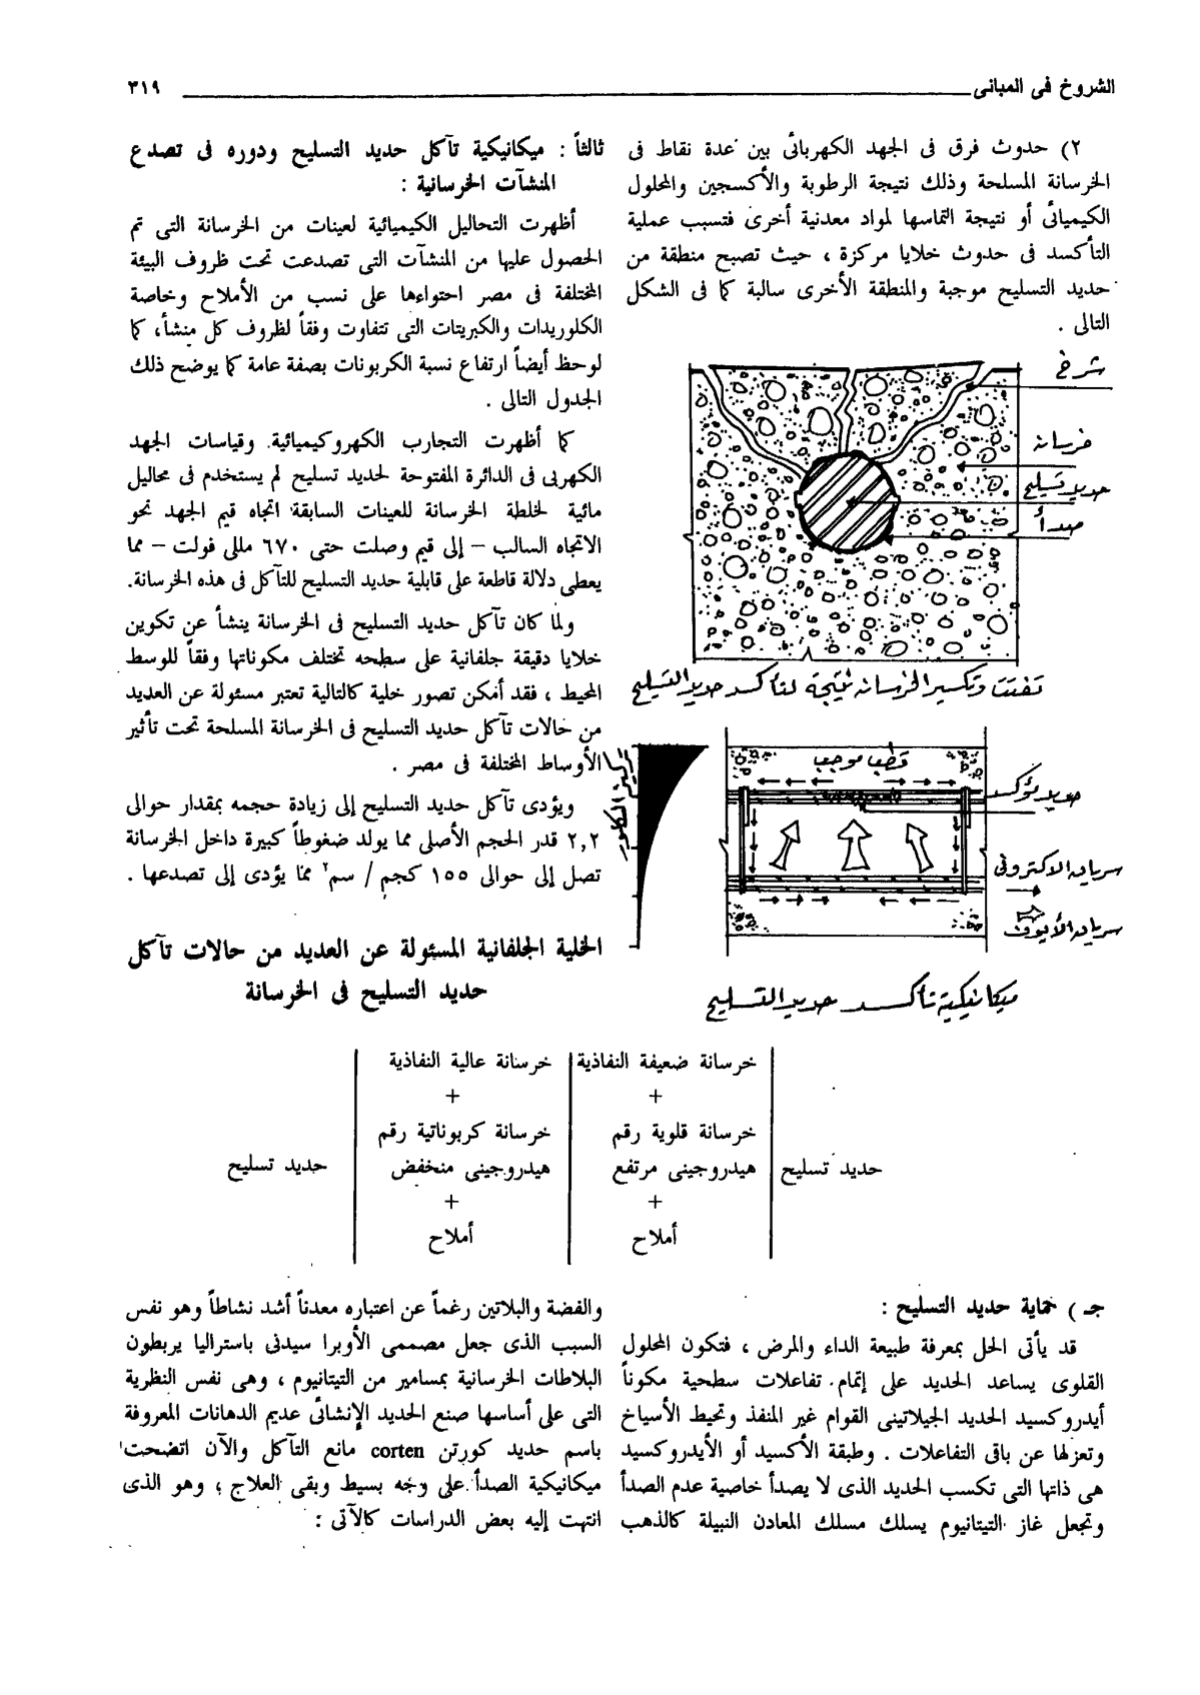 الشروخ فى المبانى
٣١٩
٢) حدوث فرق فى الجهد الكهربائى بين عدة نقاط فى
الخرسانة المسلحة وذلك نتيجة الرطوبة والأكسجين والمحلول
الكيميائى أو نتيجة التماسها لمواد معدنية أخرى فتسبب عملية
التأكسد فى حدوث خلايا مركزة ، حيث تصبح منطقة من
حديد التسليح موجبة والمنطقة الأخرى سالبة كما فى الشكل
التالى .
شرخ
خرسانه
حديد تسليح
صدأ
تفتت وتكسير الخرسانه نتيجة لتأكسد حديد التسليح
تركيز الكلور
قطب موجب
حديد مؤكسد
سريان الالكترونى
سريان الأيون
ميكانيكية تأكسد حديد التسليح
ثالثاً : ميكانيكية تآكل حديد التسليح ودوره فى تصدع
المنشآت الخرسانية :
أظهرت التحاليل الكيميائية لعينات من الخرسانة التى تم
الحصول عليها من المنشآت التى تصدعت تحت ظروف البيئة
المختلفة فى مصر احتواءها على نسب من الأملاح وخاصة
الكلوريدات والكبريتات التى تتفاوت وفقاً لظروف كل منشأ، كما
لوحظ أيضاً ارتفاع نسبة الكربونات بصفة عامة كما يوضح ذلك
الجدول التالى .
كما أظهرت التجارب الكهروكيميائية وقياسات الجهد
الكهربى فى الدائرة المفتوحة لحديد تسليح لم يستخدم فى محاليل
مائية لخلطة الخرسانة للعينات السابقة اتجاه قيم الجهد نحو
الاتجاه السالب – إلى قيم وصلت حتى ٦٧٠ مللى فولت – مما
يعطى دلالة قاطعة على قابلية حديد التسليح للتآكل فى هذه الخرسانة.
ولما كان تآكل حديد التسليح فى الخرسانة ينشأ عن تكوين
خلايا دقيقة جلفانية على سطحه تختلف مكوناتها وفقاً للوسط
المحيط ، فقد أمكن تصور خلية كالتالية تعتبر مسئولة عن العديد
من حالات تآكل حديد التسليح فى الخرسانة المسلحة تحت تأثير
الأوساط المختلفة فى مصر .
ويؤدى تآكل حديد التسليح إلى زيادة حجمه بمقدار حوالى
٢,٢ قدر الحجم الأصلى مما يولد ضغوطاً كبيرة داخل الخرسانة
تصل إلى حوالى ١٥٥ كجم / سم٢ مما يؤدى إلى تصدعها .
الخلية الجلفانية المسئولة عن العديد من حالات تآكل
حديد التسليح فى الخرسانة
خرسانة ضعيفة النفاذية
خرسانة عالية النفاذية
+
+
خرسانة قلوية رقم
خرسانة كربوناتية رقم
حديد تسليح
هيدروجينى مرتفع
هيدروجينى منخفض
حديد تسليح
+
+
أملاح
أملاح
جـ ) حماية حديد التسليح :
قد يأتى الحل بمعرفة طبيعة الداء والمرض ، فتكون المحلول
القلوى يساعد الحديد على إتمام تفاعلات سطحية مكوناً
أيدروكسيد الحديد الجيلاتينى القوام غير المنفذ وتحيط الأسياخ
وتعزلها عن باقى التفاعلات . وطبقة الأكسيد أو الأيدروكسيد
هى ذاتها التى تكسب الحديد الذى لا يصدأ خاصية عدم الصدأ
وتجعل غاز التيتانيوم يسلك مسلك المعادن النبيلة كالذهب
والفضة والبلاتين رغماً عن اعتباره معدناً أشد نشاطاً وهو نفس
السبب الذى جعل مصممى الأوبرا سيدنى باستراليا يربطون
البلاطات الخرسانية بمسامير من التيتانيوم ، وهى نفس النظرية
التى على أساسها صنع الحديد الإنشائى عديم الدهانات المعروفة
باسم حديد كورتن corten مانع التآكل والآن اتضحت
ميكانيكية الصدأ على وجه بسيط وبقى العلاج ؛ وهو الذى
انتهت إليه بعض الدراسات كالآتى :